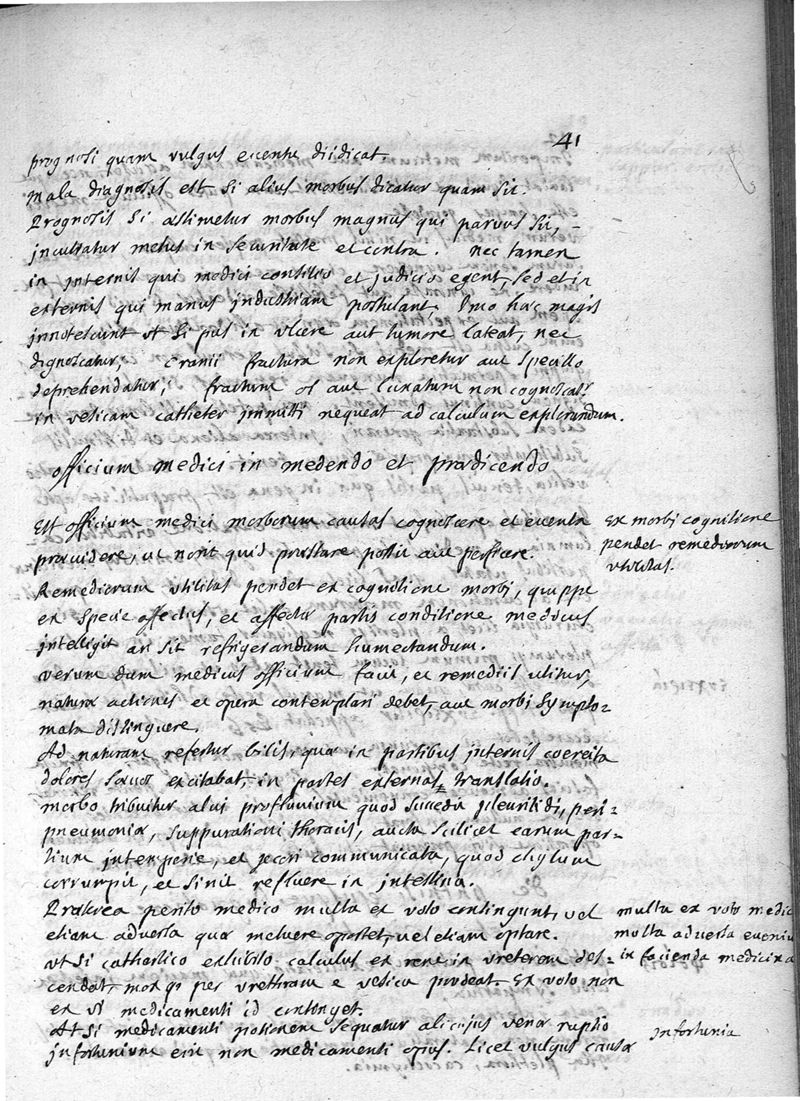 41
prognosi quam vulgus eventu diiudicat.
mala diagnosis est si alius morbus dicatur quam sit.
Prognosis si æstimetur morbus magnus qui parvus sit,
incutiatur metus in securitate et contra. nec tamen
in internis qui medici consilio et judicio egent, sed et in
externis qui manus industriam postulant, Imo hæc magis
innotescunt ut si pus in ulcere aut tumore lateat, nec
dignoscatur; Cranii fractura non exploretur aut specillo
deprehendatur; fractum os aut luxatum non cognoscatr
in vesicam catheter immitti nequeat ad calculum explorandum.
officium medici in medendo et prædicendo
Est officium medici morborum causas cognoscere et eventa
prævidere, ut norit quid præstare possit aut perficere.
Ex morbi cognitione
pendet remediorum
utilitas.
Remediorum utilitas pendet ex cognitione morbi, quippe
ex specie affectus, et affectæ partis conditione medicus
intelligit an sit refrigerandum humectandum.
verum dum medicus officium facit, et remediis utitur,
naturæ actiones et opera contemplari debet, aut morbi sympto=
mata distinguere.
Ad naturam refertur bilis, quæ in partibus internis coercita
dolores sævos excitabat, in partes externas translatio.
morbo tribuitur alvi profluvium quod succedit pleuritidi, peri=
pneumoniæ, suppurationi thoracis, aucta scilicet earum par=
tium intemperie, et jecori communicata, quod chylum
corrumpit, et sinit refluere in intestina.
Præterea perito medico multa ex voto contingunt, vel
etiam adversa quæ metuere oportet, vel etiam optare.
multa ex voto medic
multa adversa eveniu
in facienda medicina
ut si cathartico exhibito calculus ex rene in ureterem des=
cendat, mox qi per urethram e vesica prodeat. Ex voto non
ex vi medicamenti id contingit.
At si medicamenti potionem sequatur alicujus venæ ruptio
infortunium erit non medicamenti opus. Licet vulgus causæ
infortunia